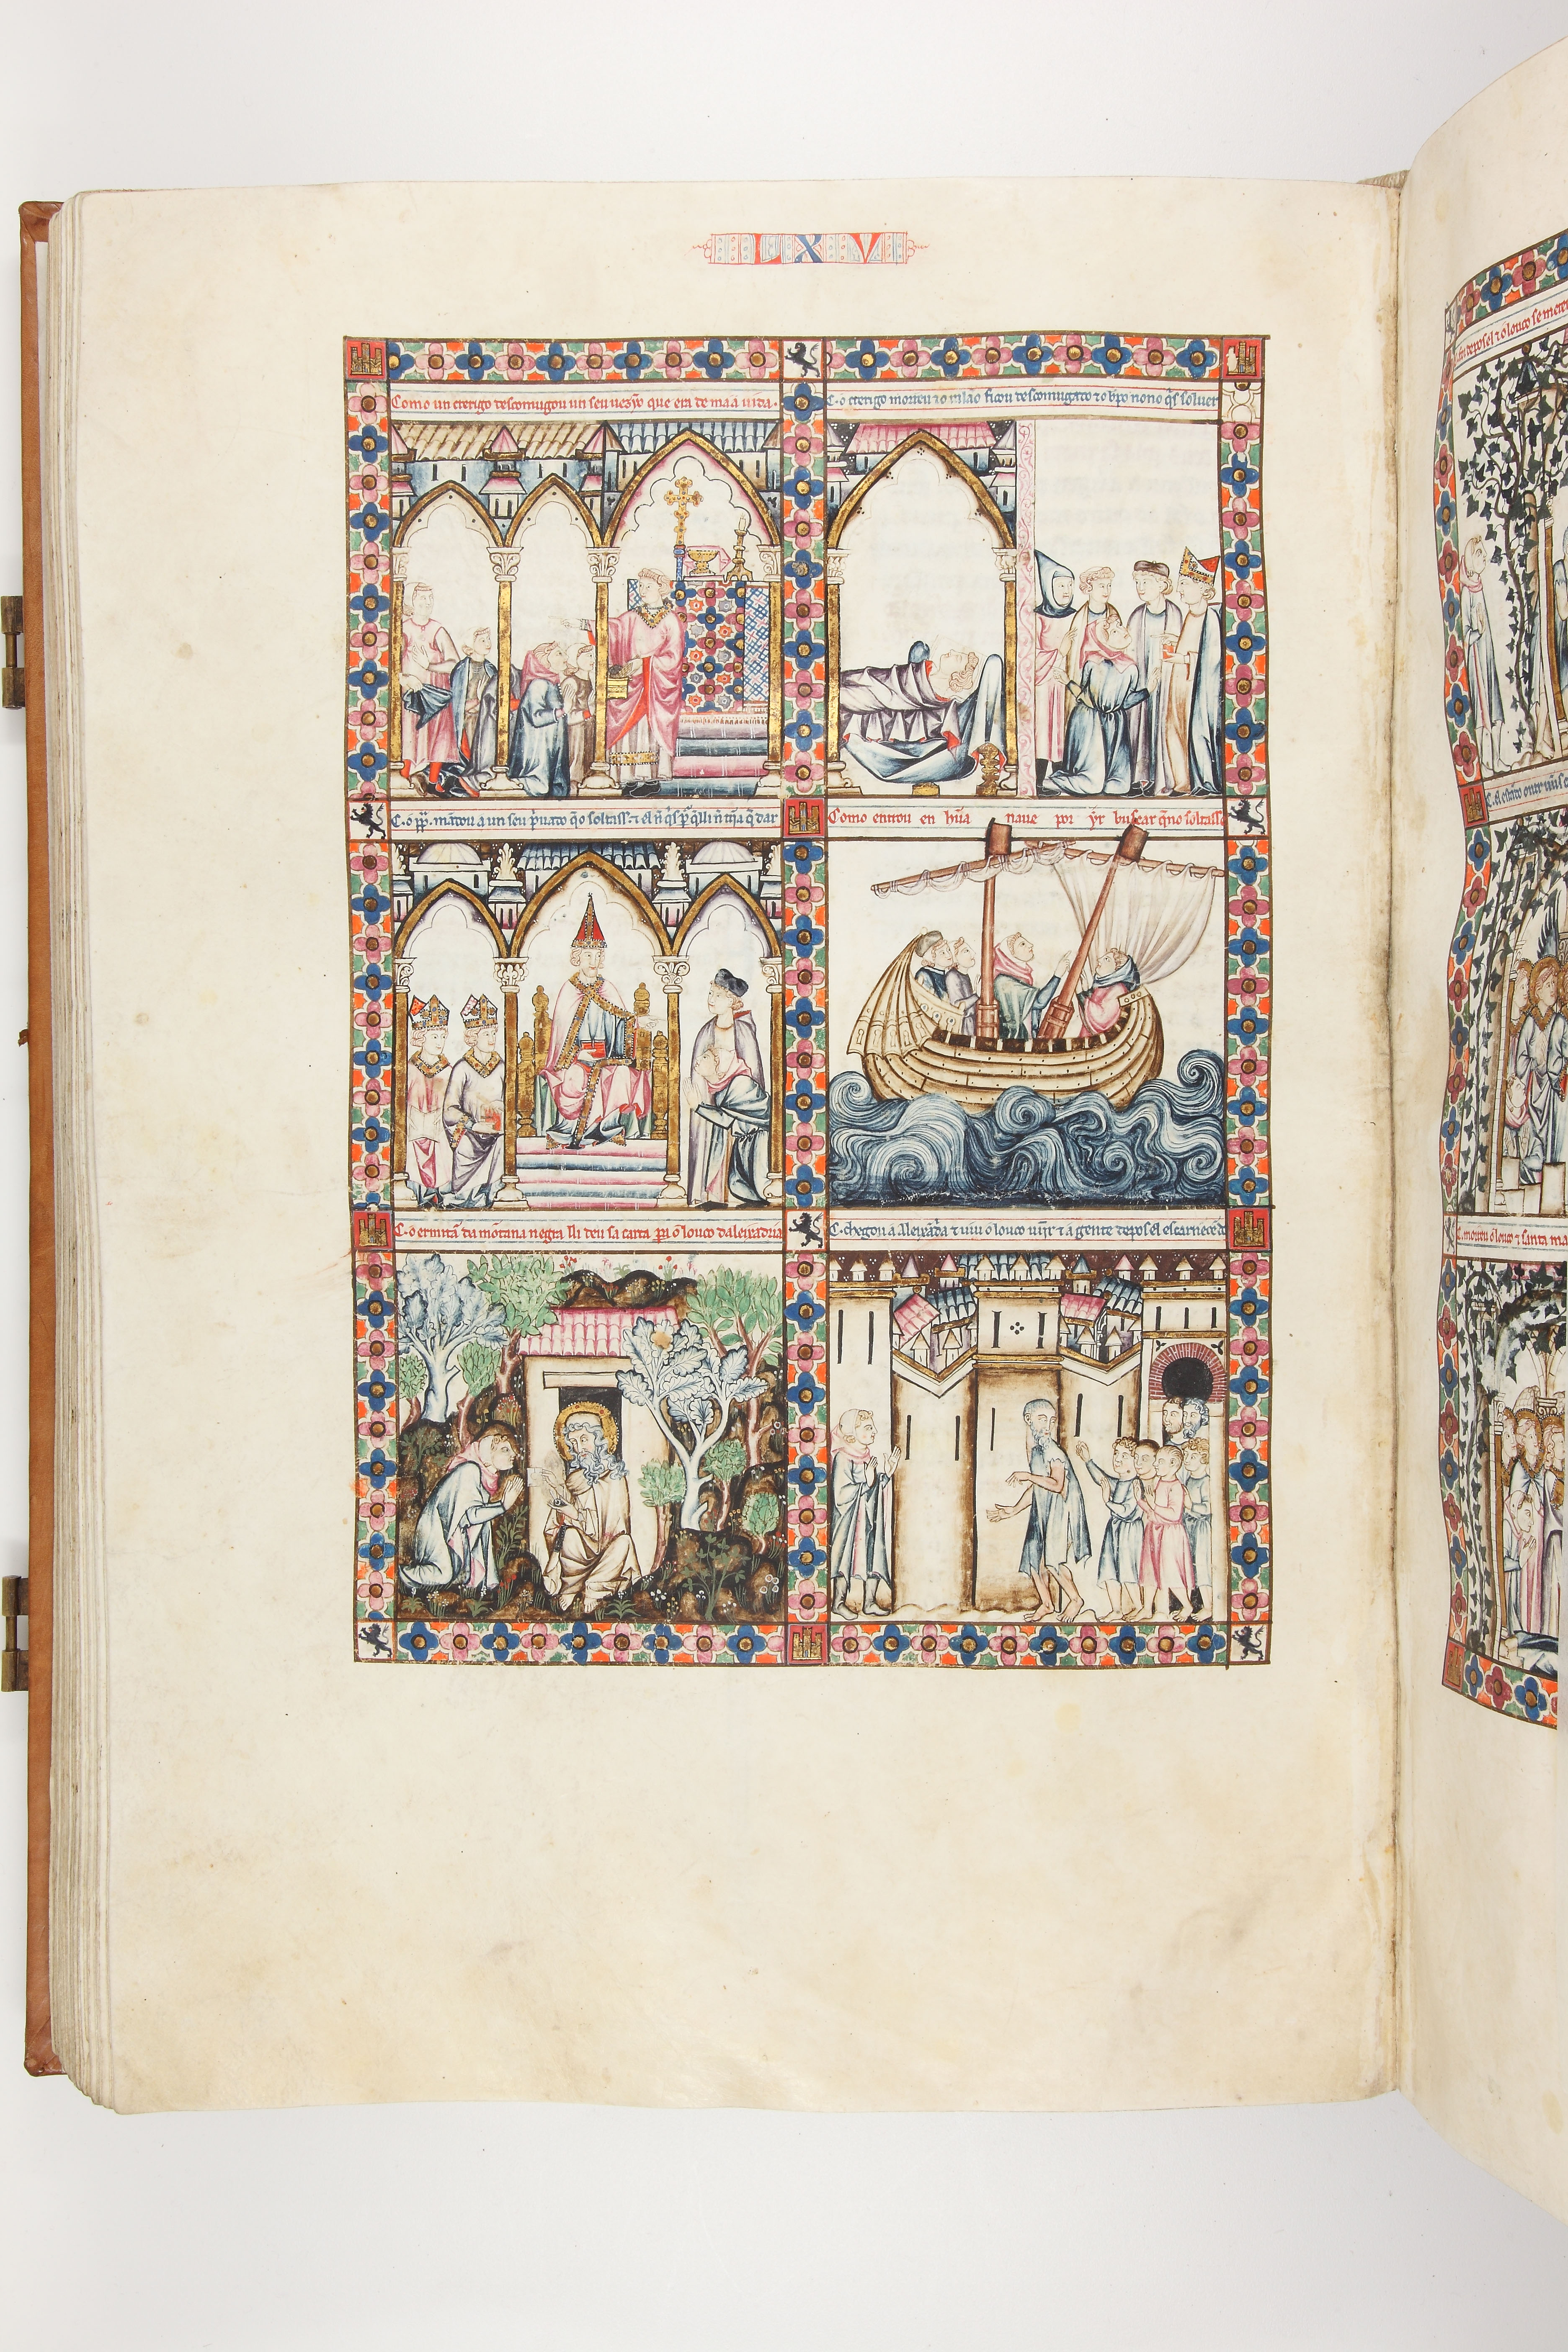 LXV
Como un crerigo descomugou un seu uezỹo que era de maa uida.
C. o crerigo morreu ⁊ o uilão ficou descomũgado ⁊ o b̃po nono q̃s soluer
C. o p̃p̃. mãdou a un seu p̃uado q̃o soltass ⁊ el
Como entrou en hũa naue por ỹr buscar q̃no soltasse
C. o ermitã da mõtana negra lli deu sa carta pera o louco dalexãdria
C. chegou a Alexãdr̃a ⁊ uiu o louco uĩjr ⁊ a gente depos el escarnecẽdo
depos el ⁊ o louco se
C. morreu o louco ⁊ santa ma